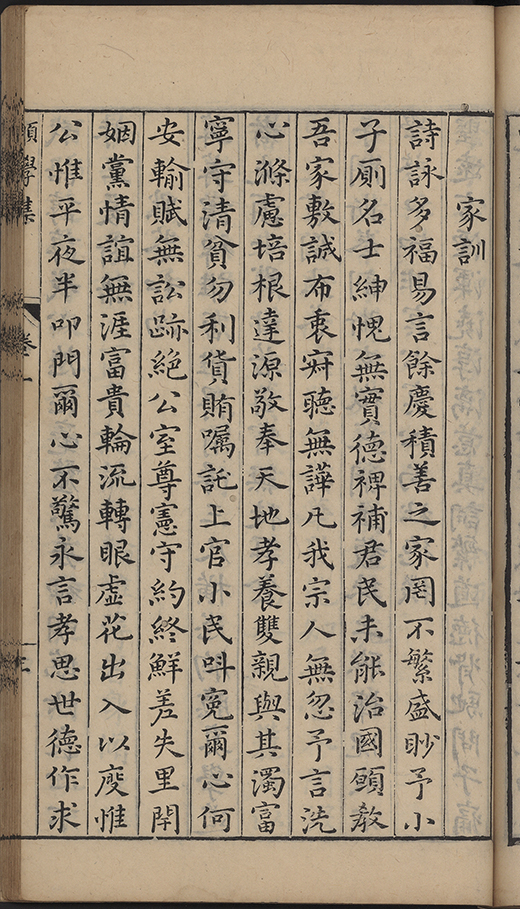 家訓
詩詠多福易言餘慶積善之家罔不繁盛眇予小
子厠名士紳愧無實德裨補君民未能治國願教
吾家敷誠布衷寂聽無譁凡我宗人無忽予言洗
心滌慮培根達源敬奉天地孝養雙親與其濁富
寧守清貧勿利貨賄囑託上官小民呌冤爾心何
安輸賦無訟跡絕公室尊憲守約終鮮差失里閈
姻黨情誼無涯富貴輪流轉眼虛花出入以度惟
公惟平夜半叩門爾心不驚永言孝思世德作求
願學集
卷一